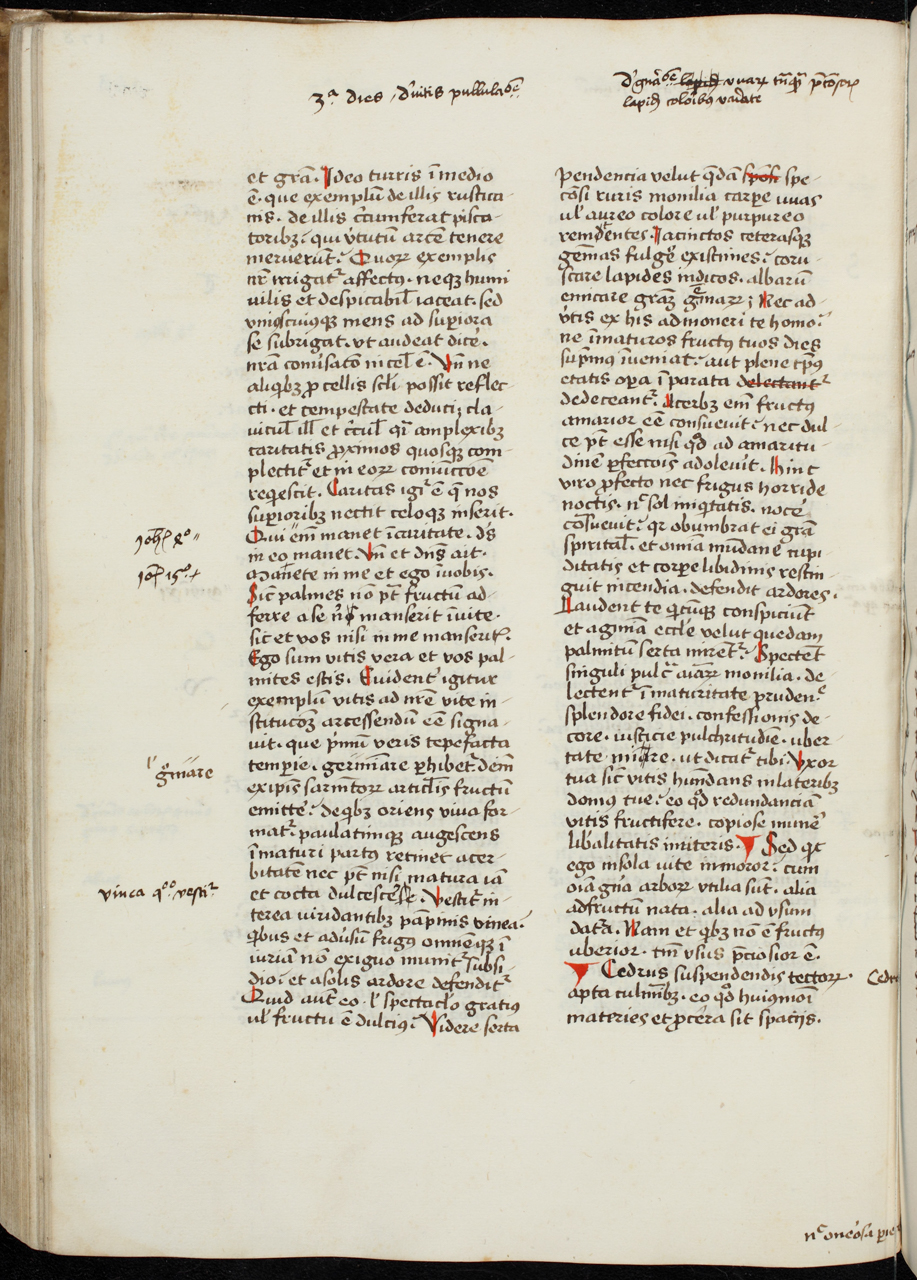 3ª dies, d' vitis pullulac̄e
et grā. Ideo turris ī medio
ē. que exemplū de illis rustica-
nis. de illis c̄cumferat pisca-
toribꝫ. qui v̓tutū arcē tenere
meruerūt. Quoꝝ exemplis
nr̄ irrigat᷑ affectꝰ. neqꝫ humi
vilis et despicabil̓ iaceat. sed
vniꝰcuiusqꝫ mens ad superiora
se subrigat. vt audeat dic̄e.
nr̄a conu̓satō in cel̓ ē. Vn̄ ne
aliqͥbꝫ ꝓcellis scl̓i possit reflec
cti. et tempestate deduci; cla-
uicul̓ ill̓ et c̓cul̓ qͥ amplexibꝫ
caritatis ꝓximos quosque com-
plectit᷑ et in eoꝝ coniūccōe
reqͥescit. Caritas igͥ ē q̄ nos
superioribꝫ nectit celoqꝫ inserit.
Qui em̄ manet ī caritate. ds̄
in eo manet. Vn̄ et dn̄s ait.
Manete in me et ego ī vobis.
Sic̄ palmes nō pt̄ fructū ad-
ferre a se nͥ manserit ī vite.
sic et vos nisi in me manserit᷑.
Ego sum vitis vera et vos pal-
mites estis. Euident᷑ igitur
exemplū vitis ad nr̄e vite in-
stitucōꝫ arcessendū eē signa-
uit. que pͥmū veris tepefacta
temperie. germīare ꝑhibet᷑. dem̄
ex ipis̄ sarmētoꝝ articul̓is fructū
emitte᷑. de qͥbꝫ oriens viua for-
mat᷑. paulatimqꝫ augescens
īmaturi partꝰ retinet acer-
bitatē nec pt̄ nisi matura iā
et cocta dulcesc̄e. Vestit᷑ in-
terea viridantibꝫ pāpinis vinea.
qͥbus et adu̓sū frigꝰ omnēqꝫ ī
iuriā nō exiguo munit᷑ subsi
dio. et a solis ardore defendit᷑
Quid aut̄ eo. l̓ spectacl̓o gratiꝰ
ul̓ fructu ē dulciꝰ. Videre serta
Joh̄ 4º
Joh̄ 15º +
gͥmīare
vinea qͦꝰ vestit᷑
lapid̓ coloribꝰ
pendencia velut qͣdā spe-
cōsi ruris monilia carpe vuas
ul̓ aureo colore ul̓ purpureo
renidentes. Iacinctos ceterasqꝫ
gem̄as fulge᷑ existimes. coru-
scare lapides indicos. albarū
enicare graꝫ gͤmaꝝ; Nec ad-
v̓tis ex his admoneri te homo.
ne īmaturos fructꝰ tuos dies
supͥmus īueniat. aut plene tp̄ꝰ
etatis oꝑa īparata delectant᷑
dedeceant᷑. Acerbꝫ em̄ fructꝰ
amarior eē consueuit. nec dul-
ce pt̄ esse nisi qͦd ad amaritu-
dinē ꝑfeccois̄ adoleuit. Hinc
viro ꝑfecto nec frigus horride
noctis. nͨ sol iniqͥtatis. noce᷑
cōsueuit. qͬ obumbrat ei grā
spirital̓. et omīa mūdane cupi-
ditatis et corꝑe libidinis restin-
guit incendia. defendit ardores.
Laudent te qͥcūqꝫ conspiciūt
et agmīa eccl̓e velut quedam
palmitū serta miret᷑. Spectent
singuli pulcͣ aīaꝝ monilia. de-
lectent᷑ ī maturitate prudenͨ.
splendore fidei. confessionis de-
core. iusticie pulchritudīe. uber-
tate mīꝫre. ut dicat᷑ tibi. Vxor
tua sic̄ vitis hūndans in lateribꝫ
domꝰ tue. eo qͦd redundanciā
vitis fructifere. copiose mune᷑
lib̓alitatis imiteris. Sed qͥt
ego in sola vite inmoror. cum
oīa gn̄a arboꝝ vtilia sūt. alia
ad fructū nata. alia ad vsum
data. Nam et qͥbꝫ nō ē fructꝰ
uberior. tm̄ vsus p̄ciosior ē.
Cedrus suspendendis tectoꝝ.
apta culmībꝫ. eo qͦd huiusmōi
materies et ꝓcera sit spatijs.